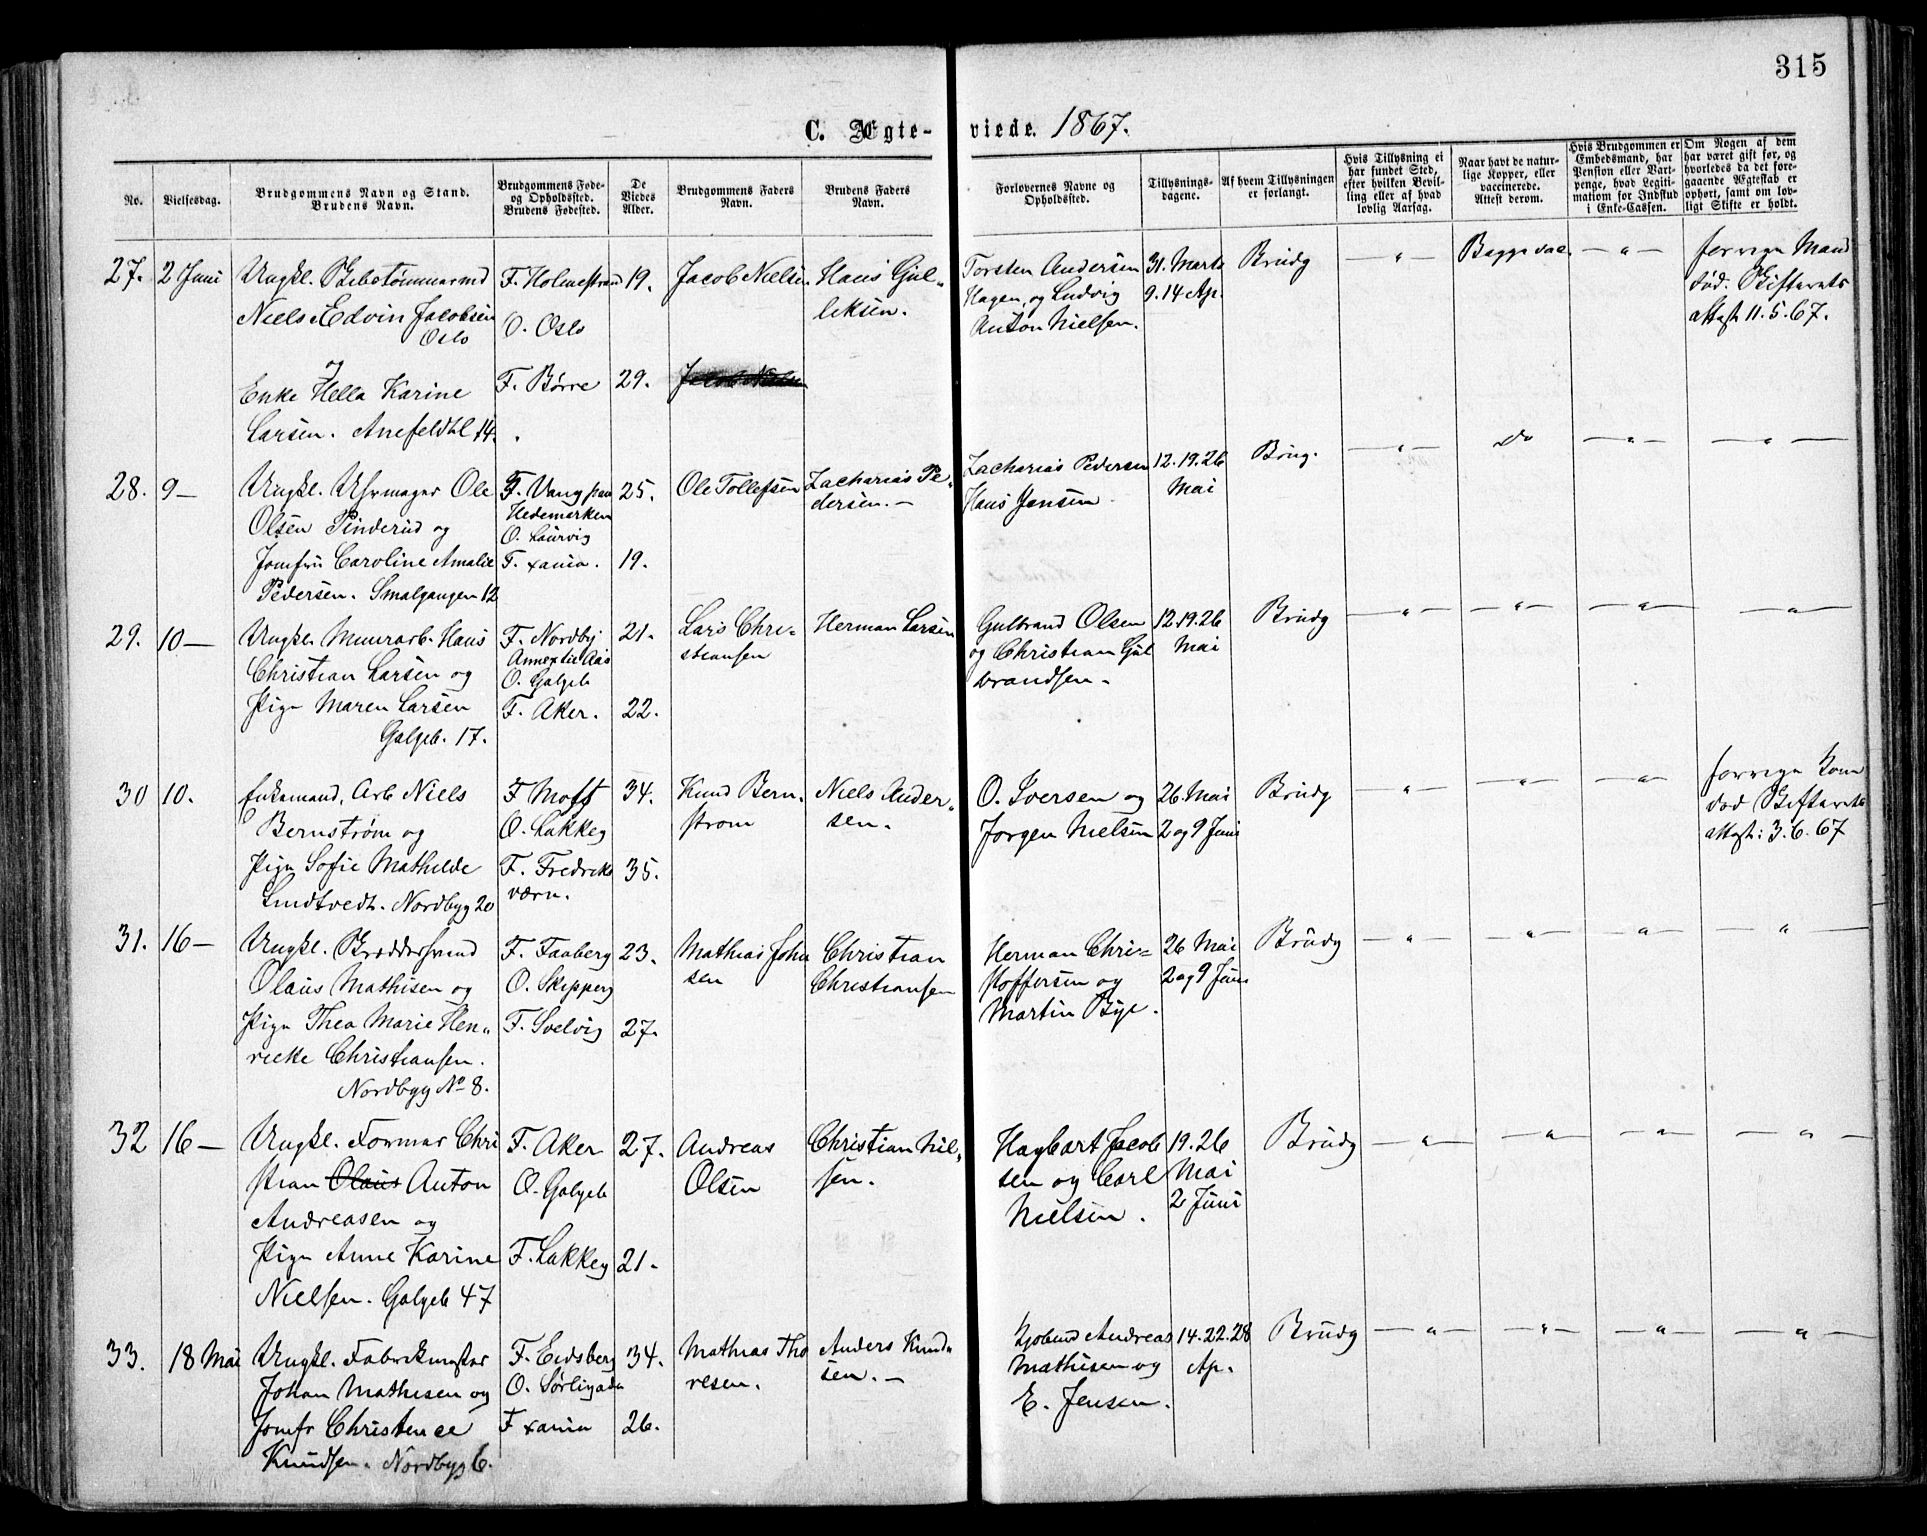 315
C. Ægte-
viede. 1867.
No.
Vielsesdag.
Brudgommens Navn og Stand.
Brudens Navn.
Brudgommens Føde-
og Opholdssted.
Brudens Fødested.
De
Viedes
Alder.
Brudgommens Faders
Navn.
Brudens Faders
Navn.
Forlovernes Navne og
Opholdssted.
Tillysnings-
dagene.
Af hvem Tillysningen
er forlangt.
Hvis Tillysning ei
har fundet Sted,
efter hvilken Bevil-
ling eller af hvad
lovlig Aarsag.
Naar havt de natur-
lige Kopper, eller
vaccinerede.
Attest derom.
Hvis Brudgommen er
Embedsmand, har
Pension eller Vart-
penge, hvad Legiti-
mation for Indskud
i Enke-Cassen.
Om Nogen af dem
har været gift før, og
hvorledes da det fore-
gaaende Ægteskab er
ophørt, samt om lov-
ligt Skifte er holdt.
27.
2 Juni
Ungkl.
Niels Edvin Jacobsen
Oslo
og
Enke Hella Karine
Larsen. 14.
F. Holmestrand
O. Oslo
F. Børre
19.
29.
Jacob Nielsen.
Jacob Nielsen
Hans Gul-
liksen.
Torsten Andersen
Hagen, og Ludvig
Anton Nielsen.
31. Marts
9. 14 Ap.
Brudg
— " —
Begge vac.
— " —
forrige Mand
død. Skifterets
attest 11.5.67.
28.
9 —
Ungkl. Uhrmager Ole
Olsen Pinderud og
Jomfru Caroline Amalie
Pedersen. Smalgangen 12
F. Vang paa
Hedemarken
O. Laurvig
F. xania.
25.
19.
Ole Tollefsen
Zacharias Pe-
dersen. —
Zacharias Pedersen
Hans Jensen
12. 19. 26
Mai
Brug.
— " —
do
— " —
— " —
29.
10 —
Ungkl. Muurarb. Hans
Christian Larsen og
Pige Maren Larsen
Galgeb. 17.
F. Nordby
Annex til Aas
O. Galgeb
F. Aker.
21.
22.
Lars Chri-
stiansen
Herman Larsen
Gulbrand Olsen
og Christian Gul
brandsen.
12. 19. 26
Mai
Brudg
— " —
— " —
— " —
— " —
30
10.
Enkemand, Arb Niels
Bernstrøm og
Pige Sofie Mathilde
Nordbyg 20
F. Moss
O. Lakkeg
F. Fredriks
værn.
34.
35.
Knud Bern-
strøm
Niels Ander-
sen.
O. Iversen og
Jørgen Nielsen
26. Mai
2 og 9 Juni
Brudg
— " —
— " —
— " —
forrige Kone
død Skifterets
attest: 3.6.67
31.
16 —
Ungkl.
Olaus Mathisen og
Pige Thea Marie Hen-
rikke Christiansen.
Nordbyg No 8.
F. Faaberg
O. Skipperg
F. Svelvig
23.
27.
Mathias Johan
sen
Christian
Christiansen
Herman Chri-
stoffersen og
Martin Bye.
26 Mai
2 og 9 Juni
Brudg
— " —
— " —
— " —
"
32
16 —
Ungkl. Formar Chri
stian Olaus Anton
Andreasen og
Pige Anne Karine
Nielsen. Galgeb 47
F. Aker
O. Galgeb
F. Lakkeg
27.
21.
Andreas
Olsen
Christian Niel-
sen.
Hagbart Jacob
sen og Carl
Nielsen.
19. 26
Mai
2 Juni
Brudg
— " —
— " —
— " —
— " —
33.
18 Mai
Ungkl. Fabrikmester
Johan Mathisen og
Jomfr Christence
Knudsen. Nordbyg 6.
F. Eidsberg
O. Sørligade
F xania
34.
26.
Mathias Tho
resen.
Anders Knud-
sen. —
Andreas
Mathisen og
E. Jensen.
14. 22. 28
Ap.
Brudg
— " —
— " —
— " —
— " —